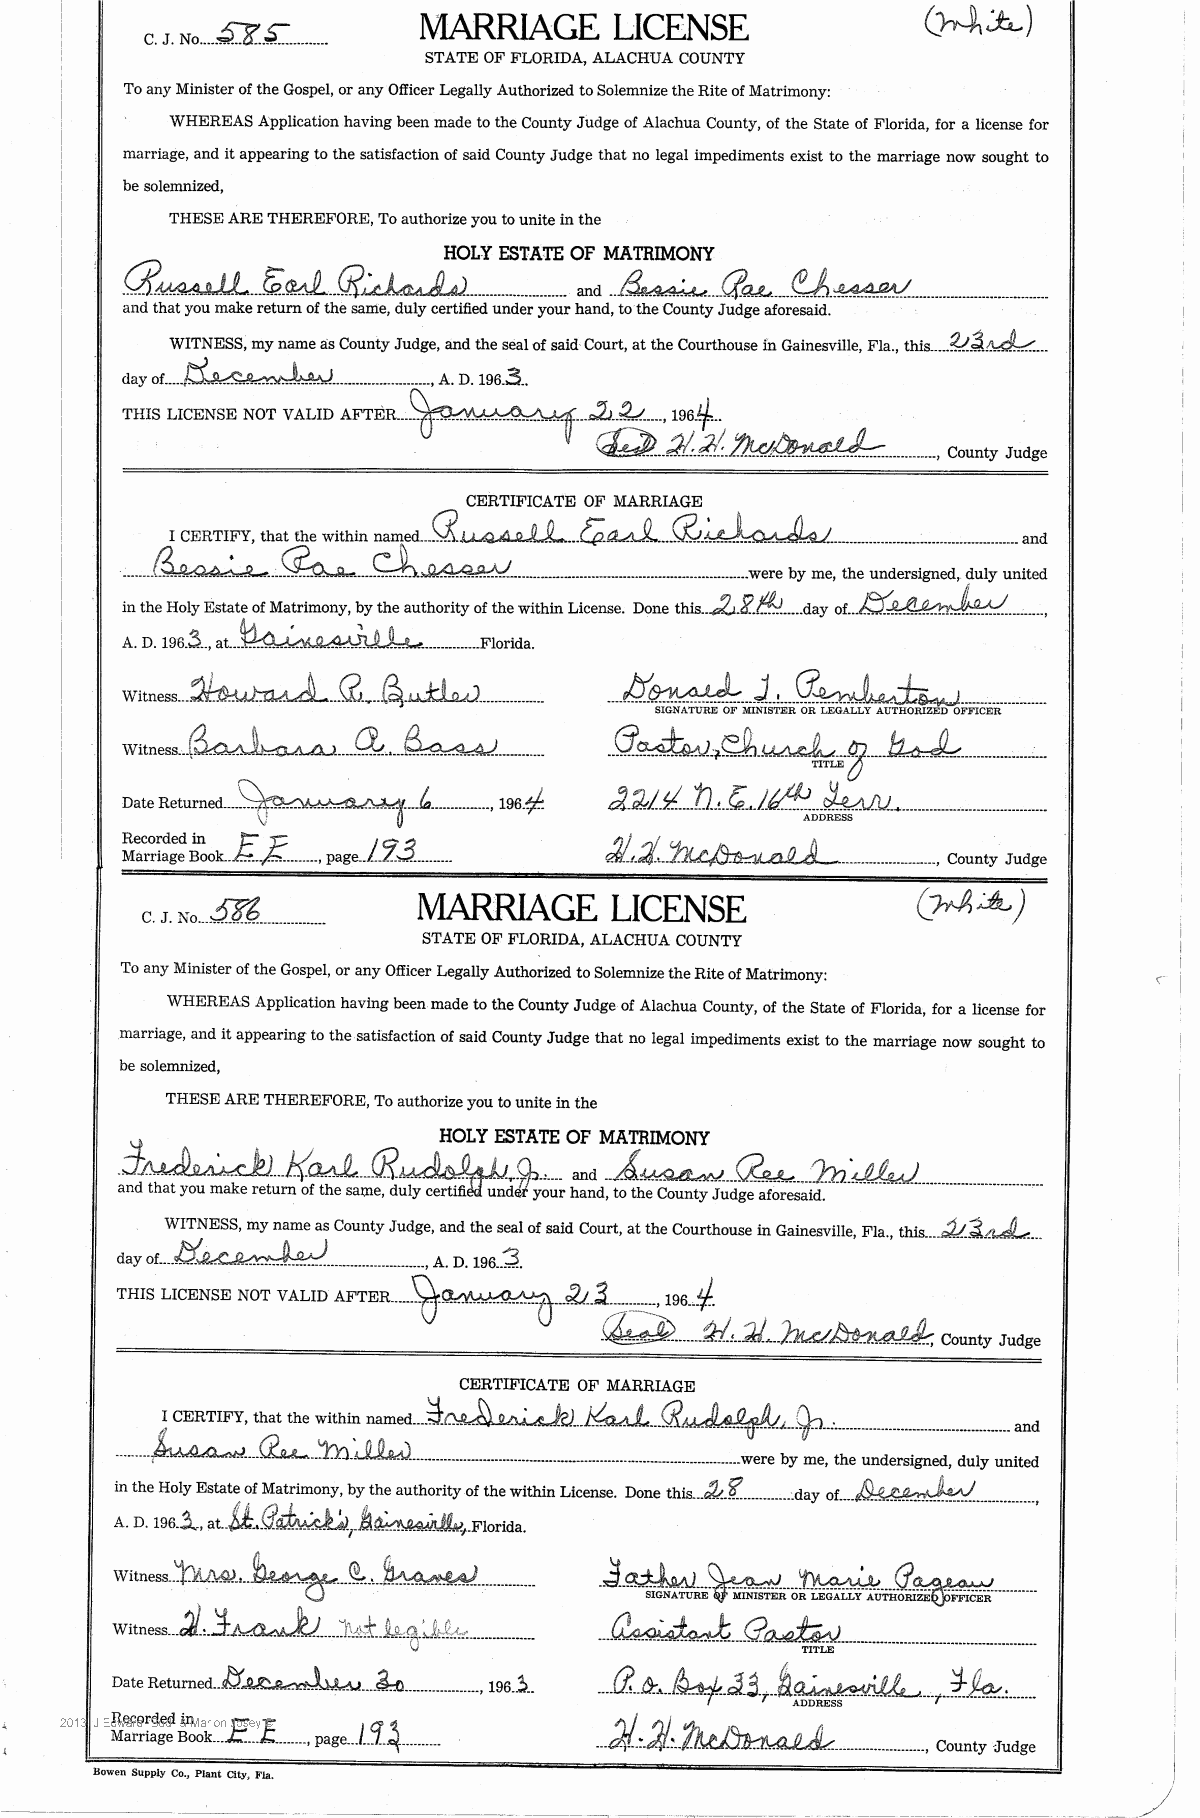 C. J. No. 585
MARRIAGE LICENSE
(White)
STATE OF FLORIDA, ALACHUA COUNTY
To any Minister of the Gospel, or any Officer Legally Authorized to Solemnize the Rite of Matrimony:
WHEREAS Application having been made to the County Judge of Alachua County, of the State of Florida, for a license for
marriage, and it appearing to the satisfaction of said County Judge that no legal impediments exist to the marriage now sought to
be solemnized,
THESE ARE THEREFORE, To authorize you to unite in the
HOLY ESTATE OF MATRIMONY
Russell Earl Richards and Bessie Rae Chesser
and that you make return of the same, duly certified under your hand, to the County Judge aforesaid.
WITNESS, my name as County Judge, and the seal of said Court, at the Courthouse in Gainesville, Fla., this 23rd
day of December, A. D. 1963.
THIS LICENSE NOT VALID AFTER January 22, 1964
(Seal) H. H. McDonald, County Judge
CERTIFICATE OF MARRIAGE
I CERTIFY, that the within named Russell Earl Richards and
Bessie Rae Chesser were by me, the undersigned, duly united
in the Holy Estate of Matrimony, by the authority of the within License. Done this 28th day of December,
A. D. 1963, at Gainesville Florida.
Witness Howard R. Butler
Donald T. Pemberton
SIGNATURE OF MINISTER OR LEGALLY AUTHORIZED OFFICER
Witness Barbara A. Bass
Pastor, Church of God
TITLE
Date Returned January 6, 1964
2214 N. E. 16th Terr.
ADDRESS
Recorded in
Marriage Book EE, page 193
H. H. McDonald, County Judge
C. J. No. 586
MARRIAGE LICENSE
(White)
STATE OF FLORIDA, ALACHUA COUNTY
To any Minister of the Gospel, or any Officer Legally Authorized to Solemnize the Rite of Matrimony:
WHEREAS Application having been made to the County Judge of Alachua County, of the State of Florida, for a license for
marriage, and it appearing to the satisfaction of said County Judge that no legal impediments exist to the marriage now sought to
be solemnized,
THESE ARE THEREFORE, To authorize you to unite in the
HOLY ESTATE OF MATRIMONY
Frederick Karl Rudolph, Jr. and Susan Ree Miller
and that you make return of the same, duly certified under your hand, to the County Judge aforesaid.
WITNESS, my name as County Judge, and the seal of said Court, at the Courthouse in Gainesville, Fla., this 23rd
day of December, A. D. 1963.
THIS LICENSE NOT VALID AFTER January 23, 1964
(Seal) H. H. McDonald, County Judge
CERTIFICATE OF MARRIAGE
I CERTIFY, that the within named Frederick Karl Rudolph, Jr. and
Susan Ree Miller were by me, the undersigned, duly united
in the Holy Estate of Matrimony, by the authority of the within License. Done this 28 day of December,
A. D. 1963, at St. Patrick's, Gainesville, Florida.
Witness Mrs. George C. Graves
Father Jean Marie Pageau
SIGNATURE OF MINISTER OR LEGALLY AUTHORIZED OFFICER
Witness H. Frank not legible
Assistant Pastor
TITLE
Date Returned December 30, 1963.
P. O. Box 33, Gainesville, Fla.
ADDRESS
Recorded in
2013 J
Marriage Book EE, page 193
H. H. McDonald, County Judge
Bowen Supply Co., Plant City, Fla.